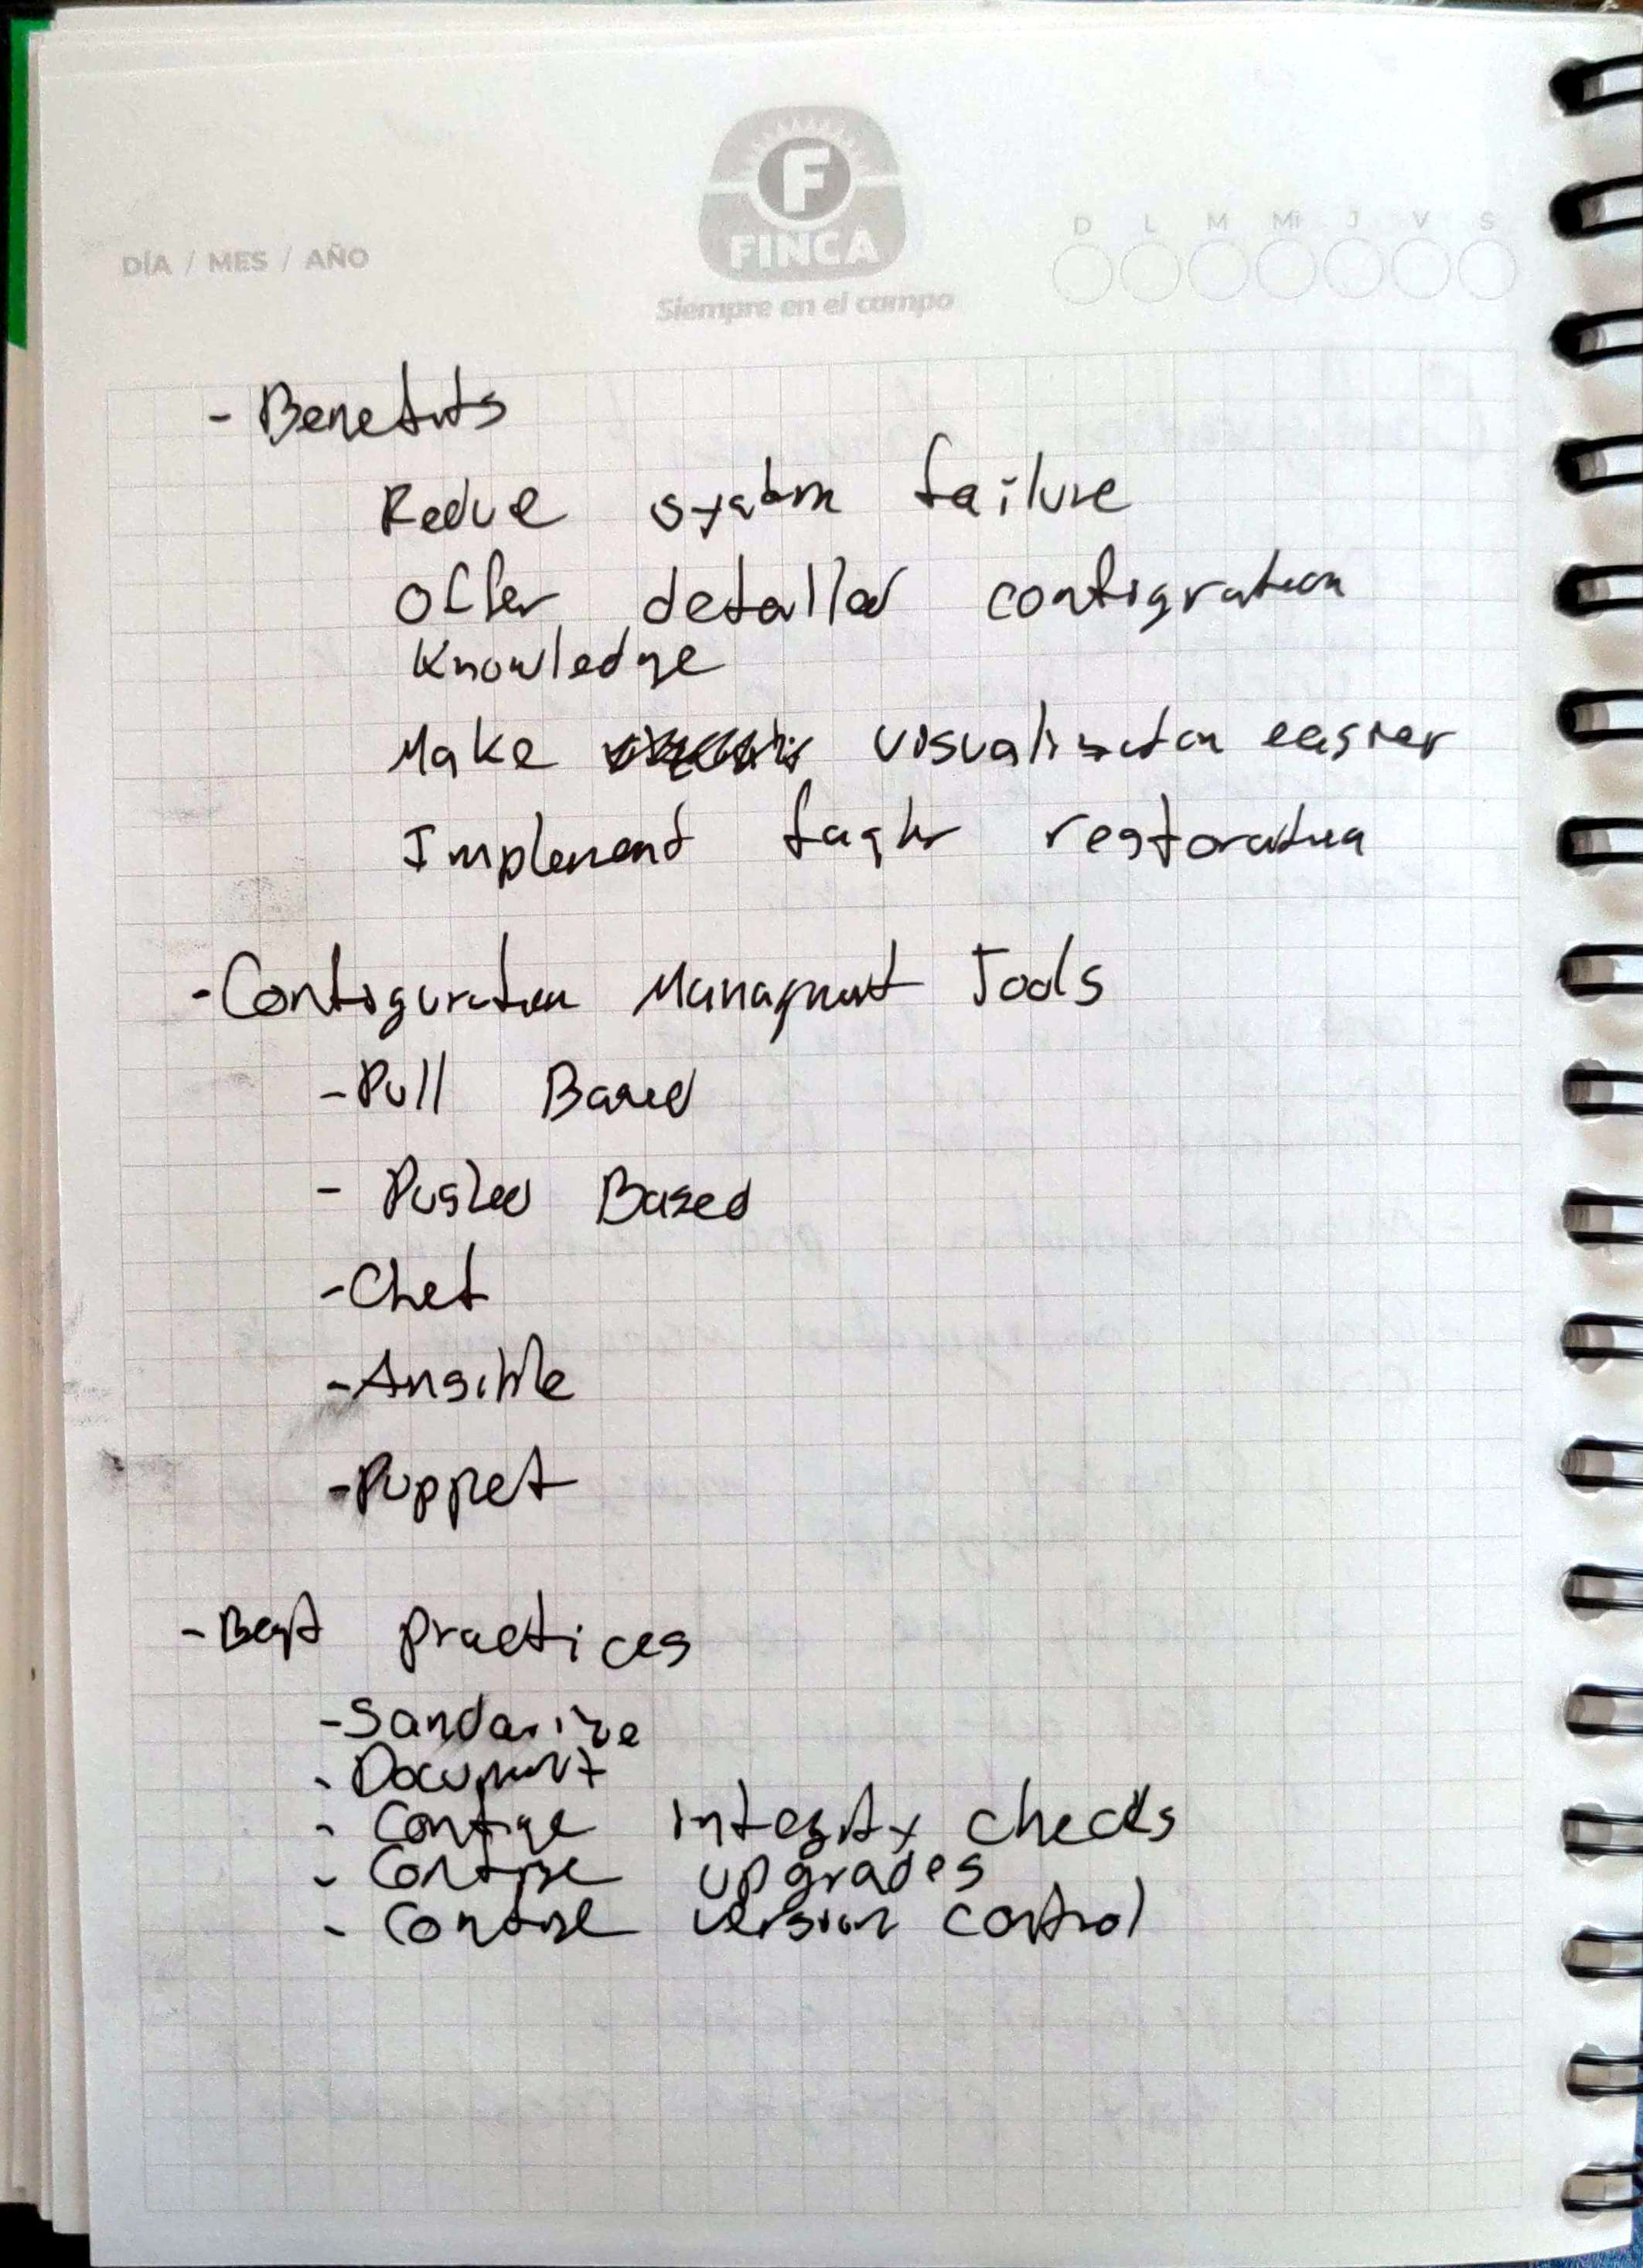 DÍA / MES / AÑO
F
FINCA
Siempre en el campo
D L M Mi J V S
- Benefits
Reduce system failure
Offer detailed configration
Knowledge
Make visualization easier
Implement faster restoration
- Configuration Managment Tools
- Pull Based
- Pushed Based
- Chef
- Ansible
- Puppet
- Best practices
- Sandarize
- Document
- Configure integrity checks
- Configure upgrades
- Configure version control